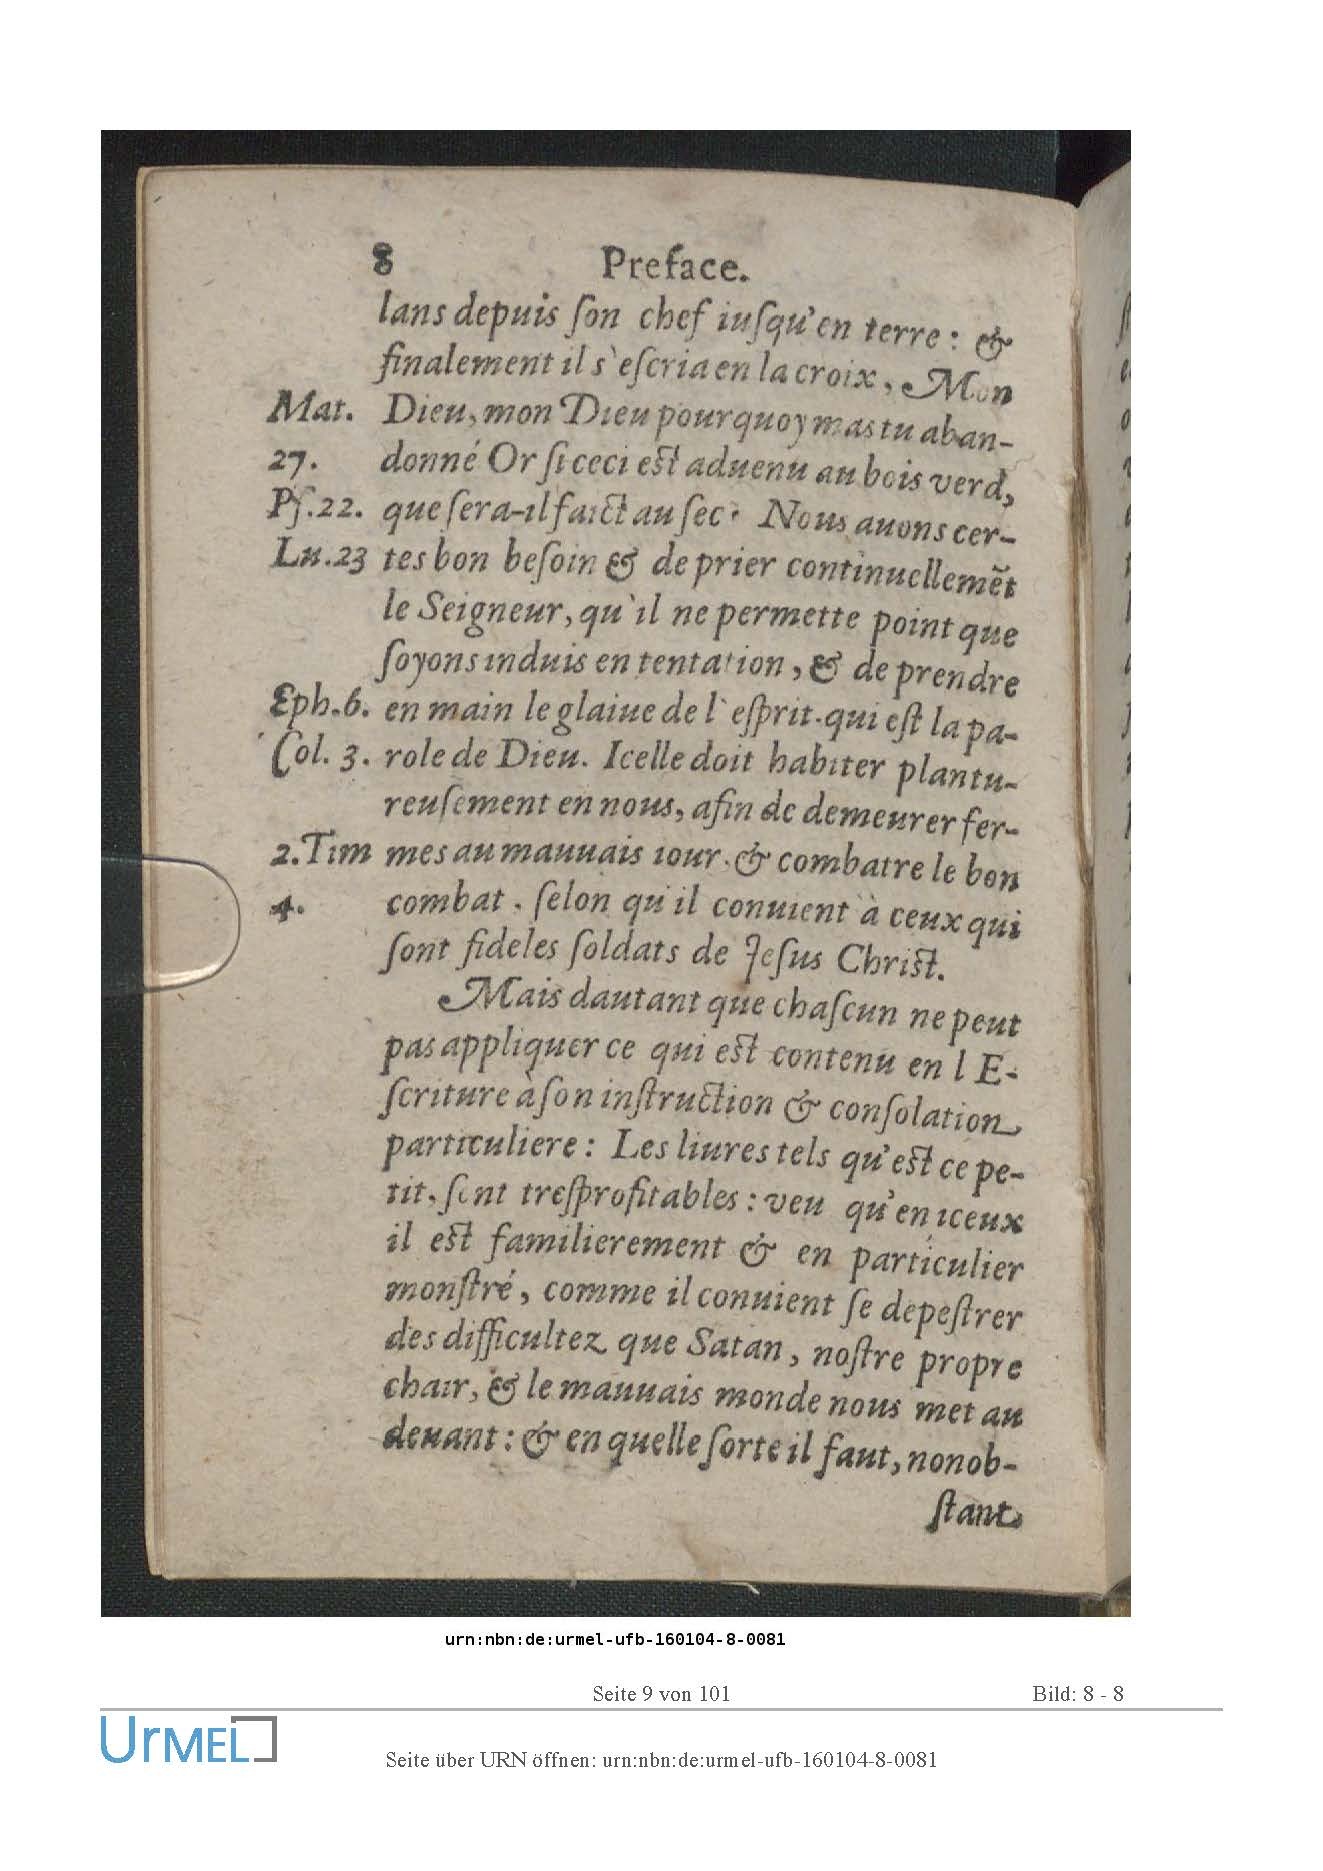 8 Preface.
lans depuis ſon chef iuſqu'en terre : &
finalement il s'eſcria en la croix, Mon
Mat. Dieu, mon Dieu pourquoy mas tu aban-
27. donné Or ſi ceci est aduenu au bois verd,
Pſ.22. que ſera-il faict au ſec? Nous auons cer-
Lu.23 tes bon beſoin & de prier continuellemēt
le Seigneur, qu'il ne permette point que
ſoyons induis en tentation, & de prendre
Eph.6. en main le glaiue de l'eſprit.qui eſt la pa-
Col. 3. role de Dieu. Icelle doit habiter plantu-
reuſement en nous, afin de demeurer fer-
2.Tim mes au mauuais iour.& combatre le bon
4. combat. ſelon qu'il conuient à ceux qui
ſont fideles ſoldats de Jeſus Christ.
Mais dautant que chaſcun ne peut
pas appliquer ce qui est contenu en l E-
ſcriture à ſon inſtruction & conſolation
particuliere : Les liures tels qu'est ce pe-
tit, ſont treſprofitables : veu qu'en iceux
il est familierement & en particulier
monſtré, comme il conuient ſe depeſtrer
des difficultez que Satan, noſtre propre
chair, & le mauuais monde nous met au
deuant : & en quelle ſorte il faut, nonob-
ſtant
urn:nbn:de:urmel-ufb-160104-8-0081
Seite 9 von 101 Bild: 8 - 8
UrMEL
Seite über URN öffnen: urn:nbn:de:urmel-ufb-160104-8-0081